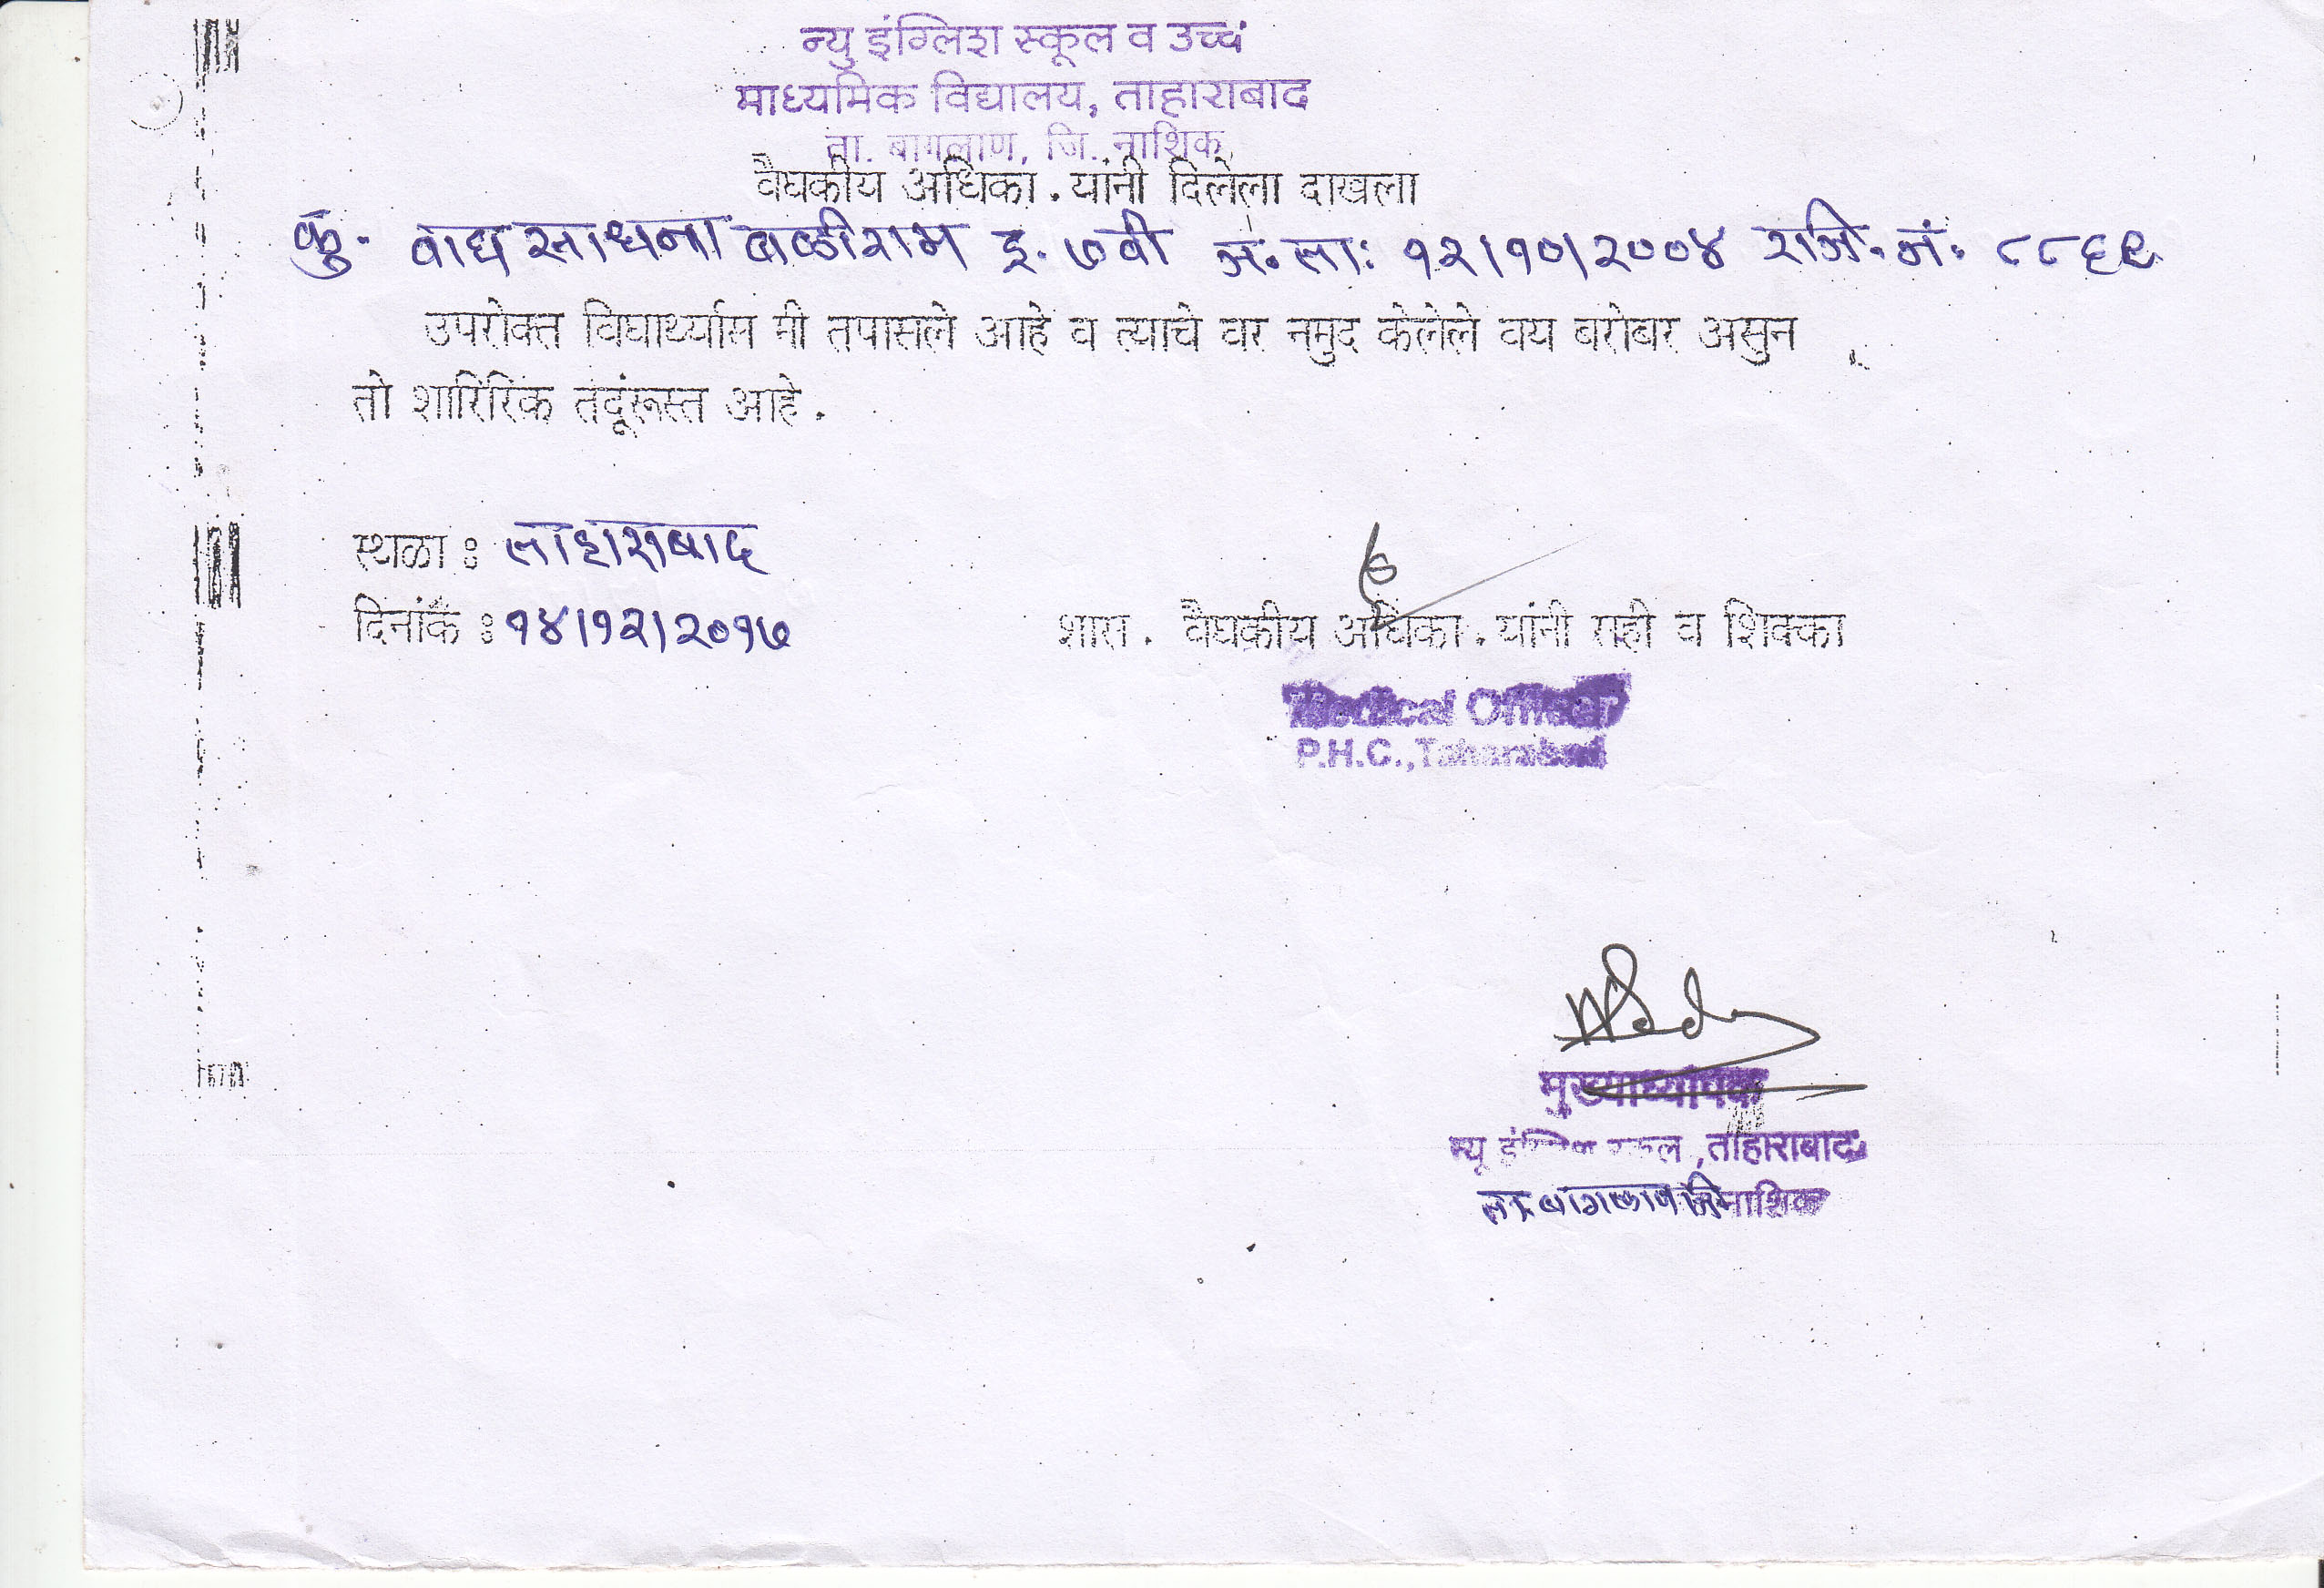 न्यु इंग्लिश स्कूल व उच्च
माध्यमिक विद्यालय, ताहाराबाद
ता. बागलाण, जि. नाशिक
वैघकीय अधिका. यांनी दिलेला दाखला
कु. वाघ साधना बळीराम इ. ७वी ज. ता: १२/१०/२००४ रजि. नं. ८८६९
उपरोक्त विघार्थ्यास मी तपासले आहे व त्याचे वर नमुद केलेले वय बरोबर असुन
तो शारिरिक तदूंरूस्त आहे.
स्थळा : ताहाराबाद
दिनांक : १४/१२/२०१७
शास. वैघकीय अधिका. यांनी सही व शिक्का
Medical Officer
P.H.C., Taharabad
मुख्याध्यापक
न्यू इंग्लिश स्कूल, ताहाराबाद
ता. बागलाण जि. नाशिक